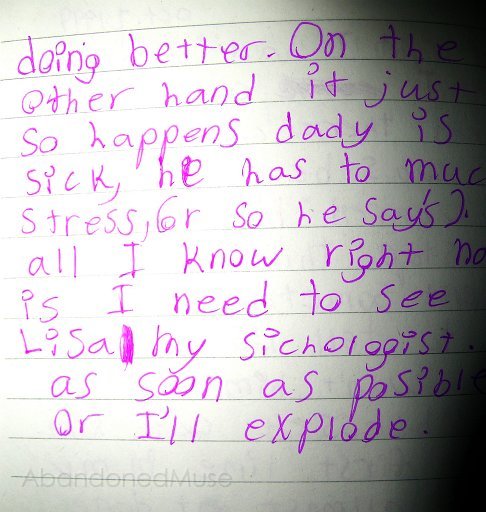 doing better. On the
other hand it just
so happens dady is
sick, he has to muc
stress, (or so he say's).
all I know right no
is I need to see
Lisa my sichologist.
as soon as posible
or I'll explode.
AbandonedMuse